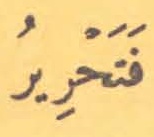 فَتَحْرِيرُ